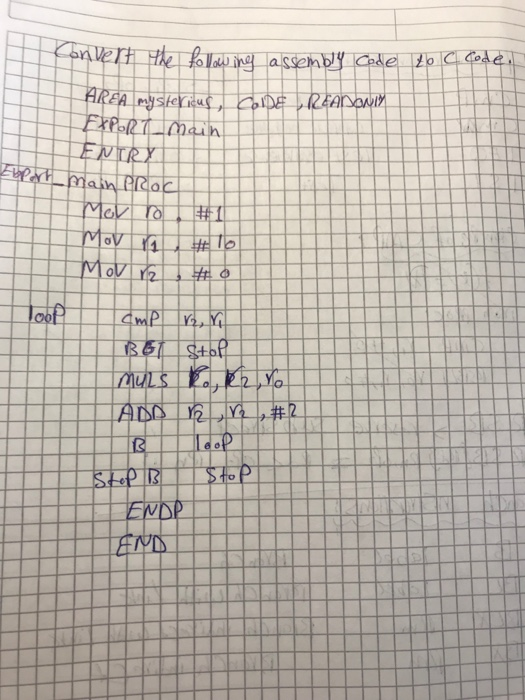 Convert the following assembly code to C code.
AREA mysterious, CODE, READONLY
EXPORT_main
ENTRY
Export_main PROC
Mov r0, #1
Mov r1, #10
Mov r2, #0
loop cmp r2, r1
BGT stop
MULS r0, r2, r0
ADD r2, r2, #2
B loop
Stop B Stop
ENDP
END